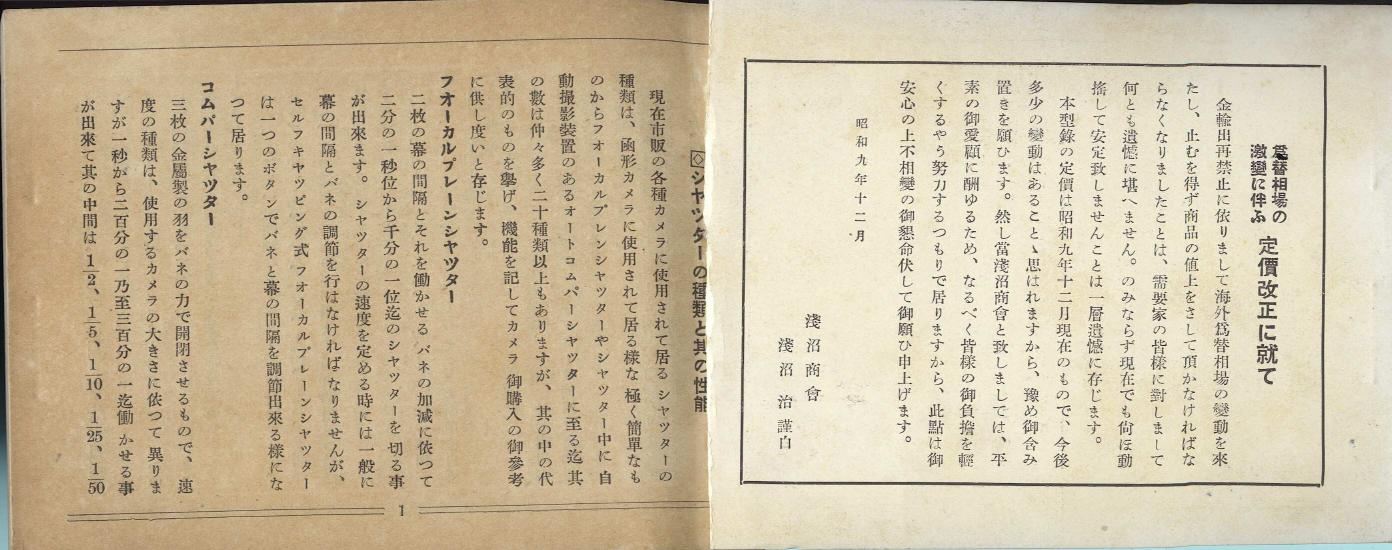 爲替相場の
激變に伴ふ
定價改正に就て
金輸出再禁止に依りまして海外爲替相場の變動を來
たし、止むを得ず商品の値上をさして頂かなければな
らなくなりましたことは、需要家の皆樣に對しまして
何とも遺憾に堪へません。のみならず現在でも尙ほ動
搖して安定致しませんことは一層遺憾に存じます。
本型錄の定價は昭和九年十二月現在のもので、今後
多少の變動はあることゝ思はれますから、豫め御含み
置きを願ひます。然し當淺沼商會と致しましては、平
素の御愛顧に酬ゆるため、なるべく皆樣の御負擔を輕
くするやう努力するつもりで居りますから、此點は御
安心の上不相變の御懇命伏して御願ひ申上げます。
昭和九年十二月
淺沼商會
淺沼治謹白
◇シヤツターの種類と其の性能
現在市販の各種カメラに使用されて居るシヤツターの
種類は、函形カメラに使用されて居る樣な極く簡單なも
のからフオーカルプレンシヤツターやシヤツター中に自
動撮影裝置のあるオートコムパーシヤツターに至る迄其
の數は仲々多く二十種類以上もありますが、其の中の代
表的のものを擧げ、機能を記してカメラ御購入の御參考
に供し度いと存じます。
フオーカルプレーンシヤツター
二枚の幕の間隔とそれを働かせるバネの加減に依つて
二分の一秒位から千分の一位迄のシヤツターを切る事
が出來ます。シヤツターの速度を定める時には一般に
幕の間隔とバネの調節を行はなければなりませんが、
セルフキヤツピング式フオーカルプレーンシヤツター
は一つのボタンでバネと幕の間隔を調節出來る樣にな
つて居ります。
コムパーシヤツター
三枚の金屬製の羽をバネの力で開閉させるもので、速
度の種類は、使用するカメラの大きさに依つて異りま
すが一秒から二百分の一乃至三百分の一迄働かせる事
が出來て其の中間は 1/2、1/5、1/10、1/25、1/50
1